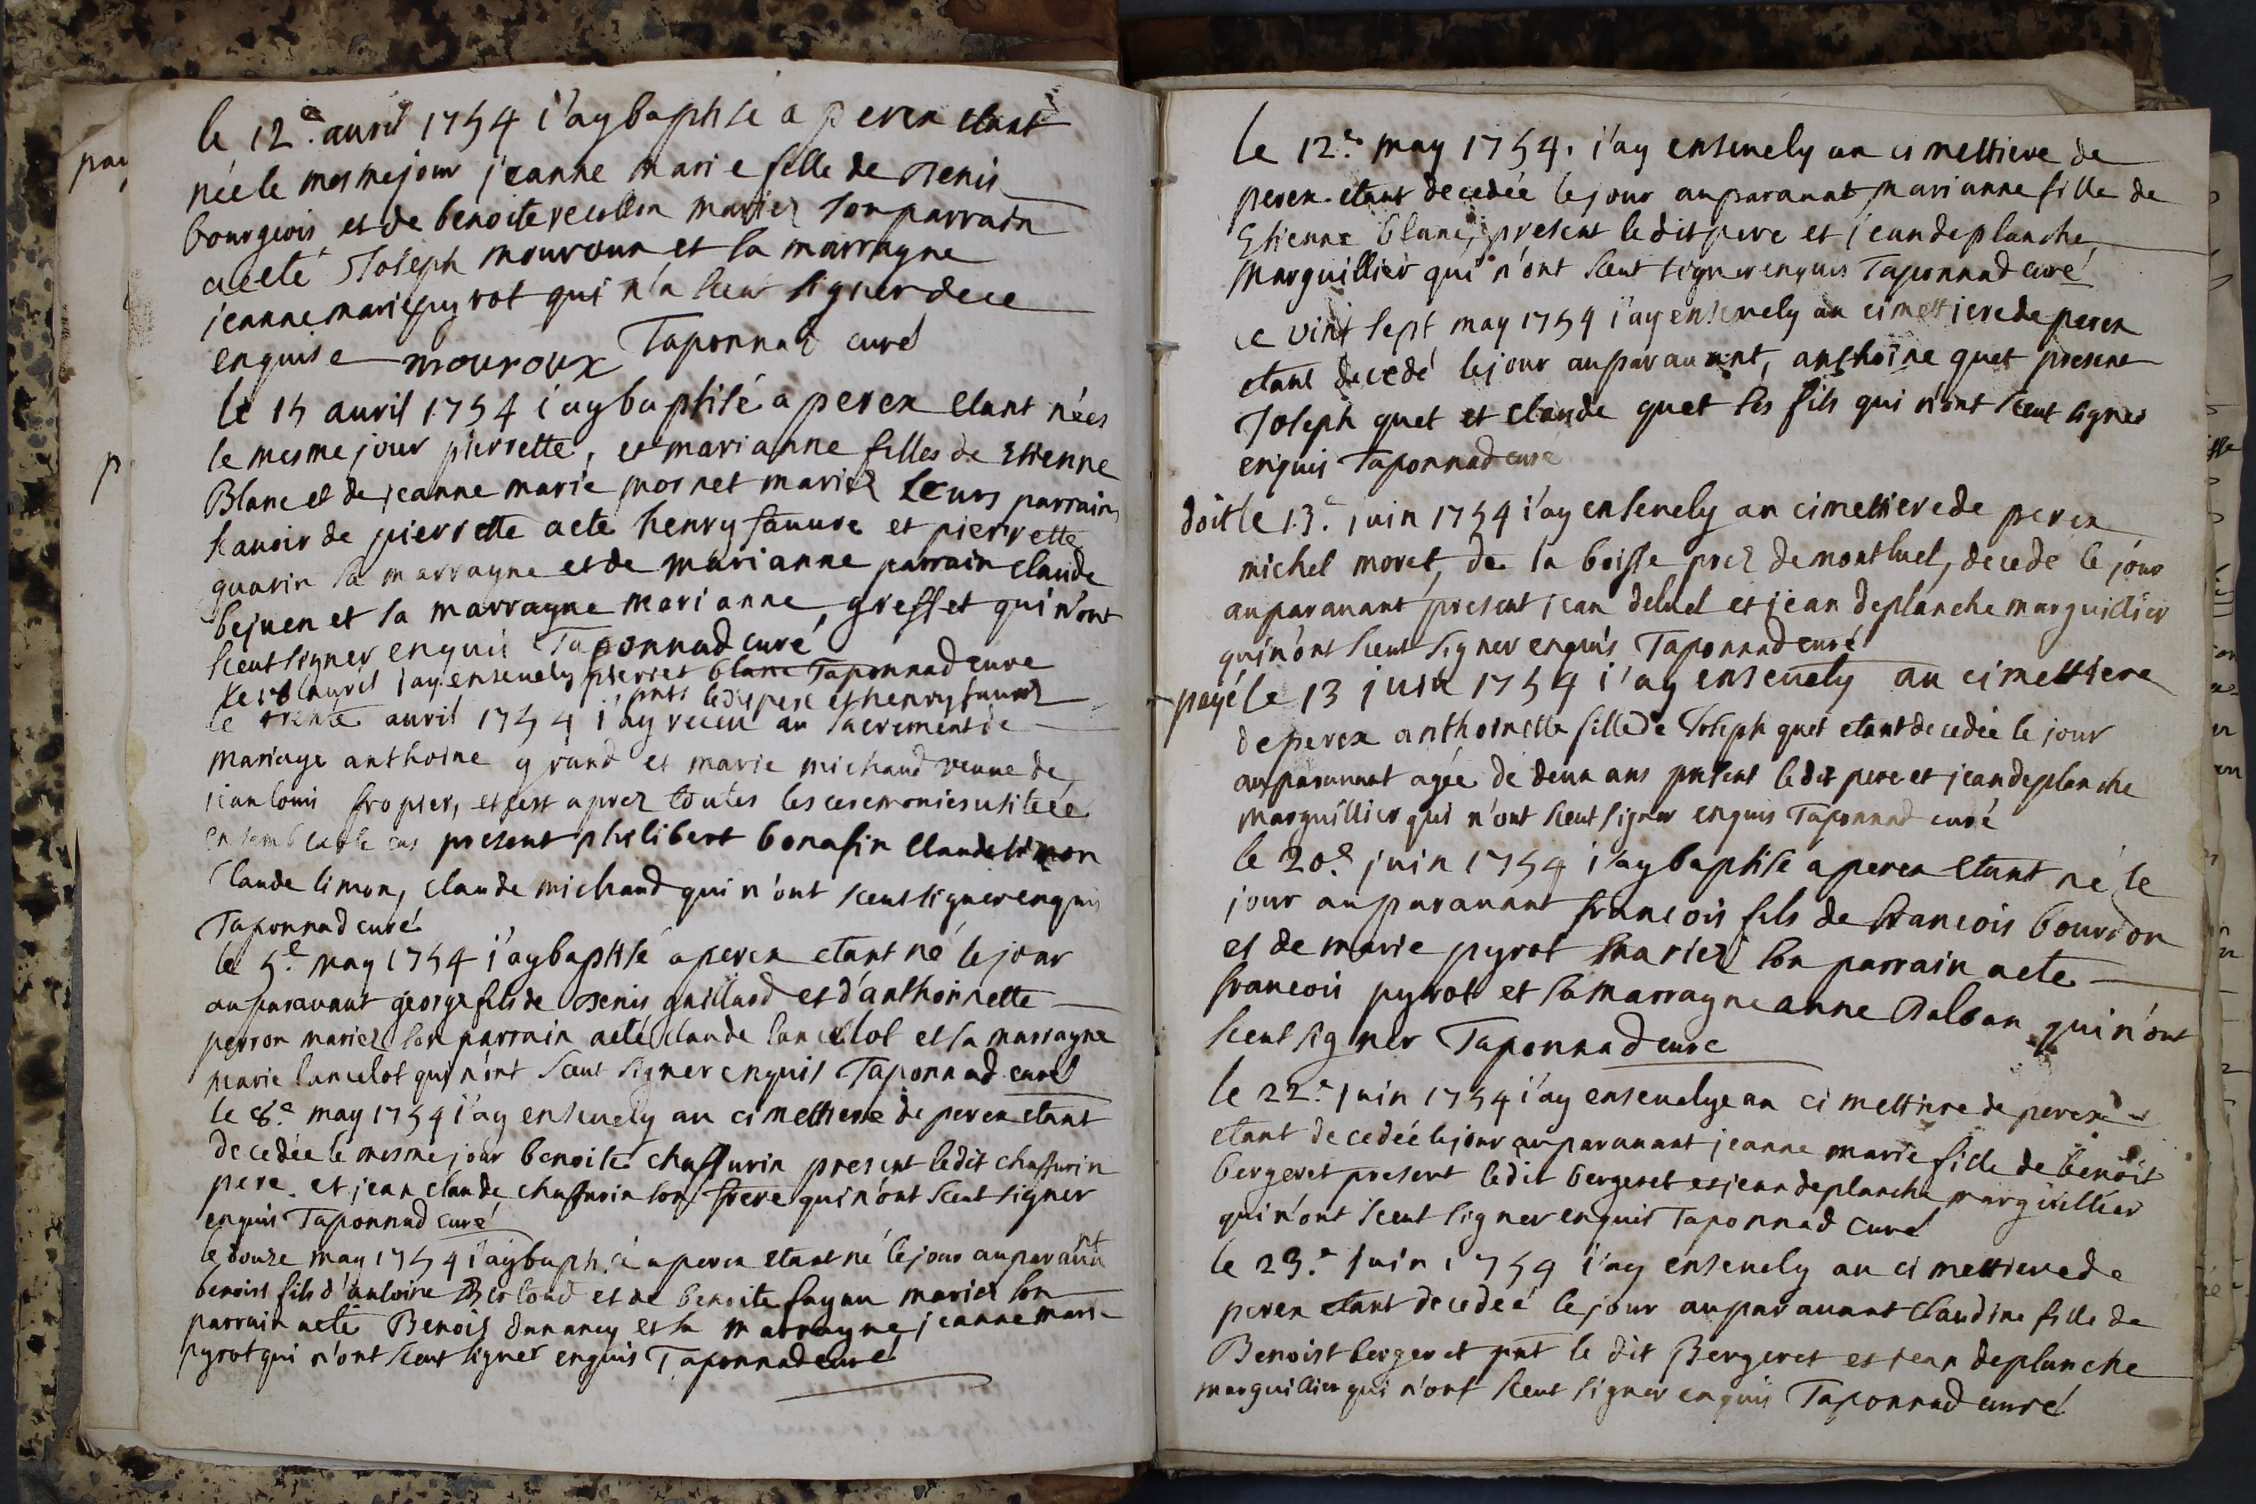 le 12.e avril 1754 i'ay baptisé a perex etant
née le mesme jour jeanne marie fille de Denis
bourgeois et de benoite recollon mariez son parrain
a eté Joseph mouroux et sa marrayne
jeanne marie pyrot qui n'a sceu signer de ce
enquise mouroux Taponnad curé
le 15 avril 1754 i'ay baptisé a perex etant nées
le mesme jour pierrette, et marianne filles de Etienne
Blanc et de jeanne marie mornet mariez leurs parrains
scavoir de pierrette a eté henry fauure et pierrette
guarin sa marrayne et de marianne parrain claude
bejuen et sa marrayne marianne greffet qui n'ont
sceut signer enquis Taponnad curé
avril i'ay enseuely pierret blanc Taponnad cure
pnts ledit pere et henry fauure
le trente avril 1754 i'ay receu au sacrement de
mariage anthoine grand et marie michaud veuue de
jean louis fropier, et c'est aprez toutes les ceremonies usiteée
en semblable cas present philibert bonafin Claude limon
Claude limon, claude michaud qui n'ont sceut signer enquis
Taponnad curé
le 5.e may 1754 i'ay baptisé a perex etant né le jour
auparauant george fils de Denis guillard et d'anthoinette
perron mariez son parrain a eté Claude lancelot et sa marrayne
marie lancelot qui n'ont sceut signer enquis Taponnad curé
le 8.e may 1754 i'ay enseuely au cimettiere de perex etant
decedée le mesme jour benoite chaffurin present ledit chaffurin
pere et jean claude chaffurin son frere qui n'ont sceut signer
enquis Taponnad curé
le douze may 1754 i'ay baptisé a perex etant né le jour auparauant
benoist fils d'antoine Berloud et de benoite fayau mariez son
parrain a eté Benoit danancy et sa marrayne jeanne marie
pyrot qui n'ont sceut signer enquis Taponnad curé
le 12.e may 1754. i'ay enseuely au cimettiere de
perex etant decedée le jour auparauant marianne fille de
Etienne blanc, present ledit pere et jean deplanche
Marguillier qui n'ont sceut signer enquis Taponnad curé
le vint sept may 1754 i'ay enseuely au cimettiere de perex
etant decedé le jour auparauant, anthoine quet present
Joseph quet et claude quet ses fils qui n'ont sceut signer
enquis Taponnad curé
doit le 13.e juin 1754 i'ay enseuely au cimettiere de perex
michel moret, de la boisse prez de montluel, decede le jour
auparauant present jean deluel et jean deplanche marguillier
qui n'ont sceut signer enquis Taponnad curé
payé le 13 juin 1754 i'ay enseuely au cimettiere
de perex anthoinette fille de Joseph quet etant decedée le jour
auparauant agée de deux ans present le dit pere et jean deplanche
marguillier qui n'ont sceut signer enquis Taponnad curé
le 20.e juin 1754 i'ay baptisé a perex etant né le
jour auparauant francois fils de francois bourdon
et de marie pyrot mariez son parrain a ete
francois pyrot et sa marrayne anne Dalban qui n'ont
sceut signer Taponnad curé
le 22.e juin 1754 i'ay enseuelye au cimettiere de perex
etant decedée le jour auparauant jeanne marie fille de benoit
bergeret present ledit bergeret et jean deplanche marguillier
qui n'ont sceut signer enquis Taponnad curé
le 23.e juin 1754 i'ay enseuely au cimettiere de
perex etant decedeé le jour auparauant claudine fille de
Benoist bergeret pnt le dit Bergeret et jean deplanche
marguillier qui n'ont sceut signer enquis Taponnad curé